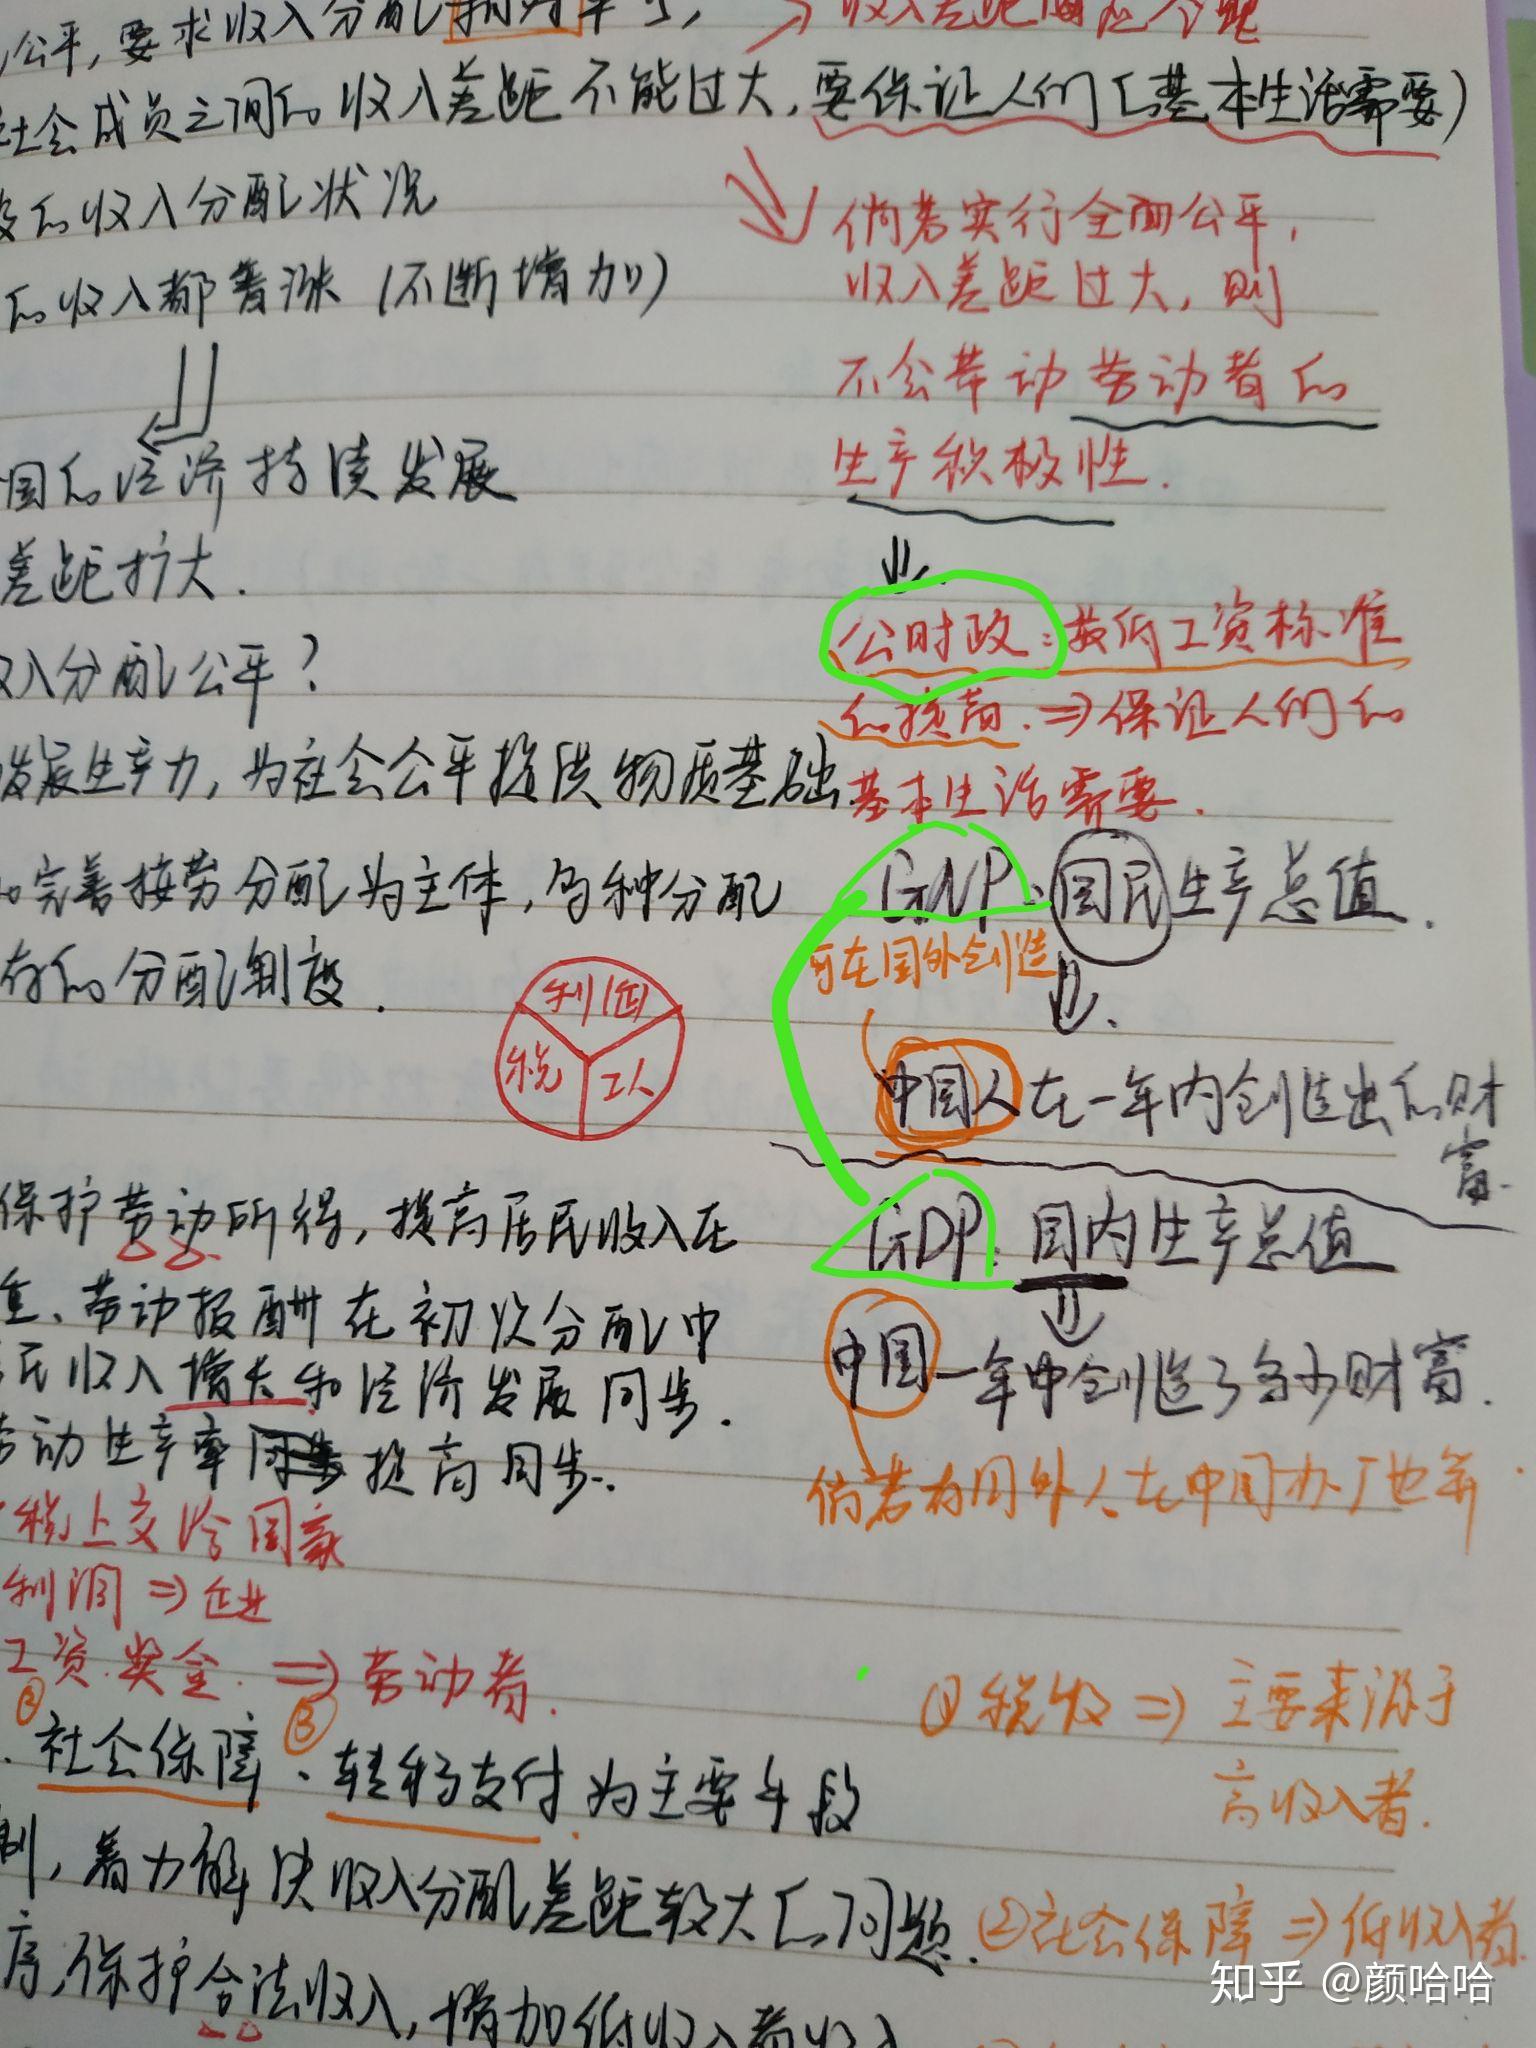 公平,要求收入分配
社会成员之间的收入差距不能过大,要保证人们的基本生活需要)
的收入分配状况
的收入都普涨(不断增加)
国的经济持续发展
差距扩大.
收入分配公平?
发展生产力,为社会公平提供物质基础
完善按劳分配为主体,多种分配
存的分配制度.
利(企)
税
工人
保护劳动所得,提高居民收入在
重、劳动报酬在初次分配中
民收入增长和经济发展同步.
劳动生产率 提高同步.
税上交给国家
利润⇒企业
工资.奖金.⇒劳动者.
② ③
社会保障、转移支付为主要手段
制,着力解决收入分配差距较大的问题.
序,保护合法收入,增加低收入者收入
→收入差距
倘若实行全面公平,
收入差距过大,则
不会带动劳动者的
生产积极性.
公时政:最低工资标准
的提高.⇒保证人们的
基本生活需要.
GNP:国民生产总值.
可在国外创造
中国人在一年内创造出的财
富.
GDP:国内生产总值
中国一年中创造了多少财富.
倘若为国外人在中国办厂也算
①税收⇒主要来源于
高收入者.
②社会保障⇒低收入者.
知乎 @颜哈哈